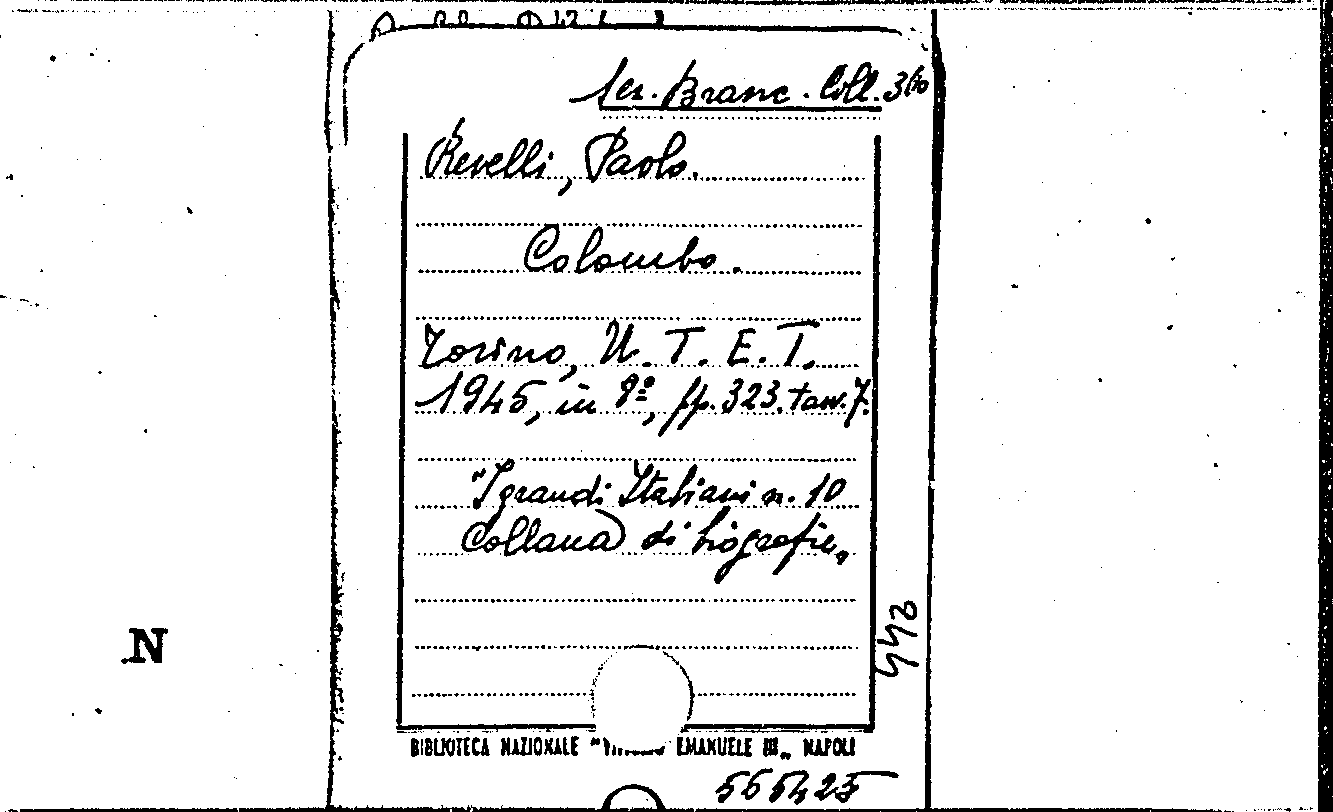 Branc. Coll. 360
Revelli, Paolo.
Colombo.
Torino, U. T. E. T.
1945, in 8º, pp. 323. tav. 7.
"I grandi Italiani n. 10
Collana di biografie„
N
BIBLIOTECA NAZIONALE " EMANUELE III„ NAPOLI
555425